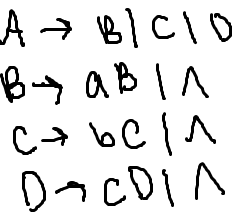 A → B | C | D
B → aB | Λ
C → bC | Λ
D → cD | Λ